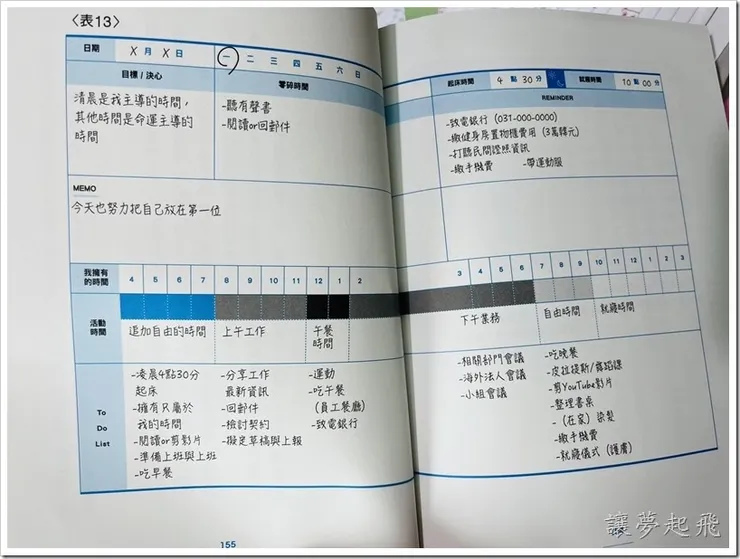 〈表13〉
日期 X月X日 一 二 三 四 五 六 日
目標 / 決心
清晨是我主導的時間，
其他時間是命運主導的
時間
零碎時間
-聽有聲書
-閱讀or回郵件
MEMO
今天也努力把自己放在第一位
起床時間 4 點 30 分 就寢時間 10 點 00 分
REMINDER
-致電銀行 (031-000-0000)
-繳健身房置物櫃費用 (3萬韓元)
-打聽民間證照資訊
-繳手機費 -帶運動服
我擁有
的時間
4 5 6 7 8 9 10 11 12 1 2
3 4 5 6 7 8 9 10 11 12 1 2 3
活動
時間
追加自由的時間
上午工作
午餐
時間
下午業務
自由時間
就寢時間
To
Do
List
-凌晨4點30分
起床
-擁有只屬於
我的時間
-閱讀or剪影片
-準備上班與上班
-吃早餐
-分享工作
最新資訊
-回郵件
-檢討契約
-擬定草稿與上報
-運動
-吃午餐
(員工餐廳)
-致電銀行
-相關部門會議
-海外法人會議
-小組會議
-吃晚餐
-皮拉提斯/舞蹈課
-剪YouTube影片
-整理書桌
-（在家）染髮
-繳手機費
-就寢儀式 (護膚)
155
讓夢起飛